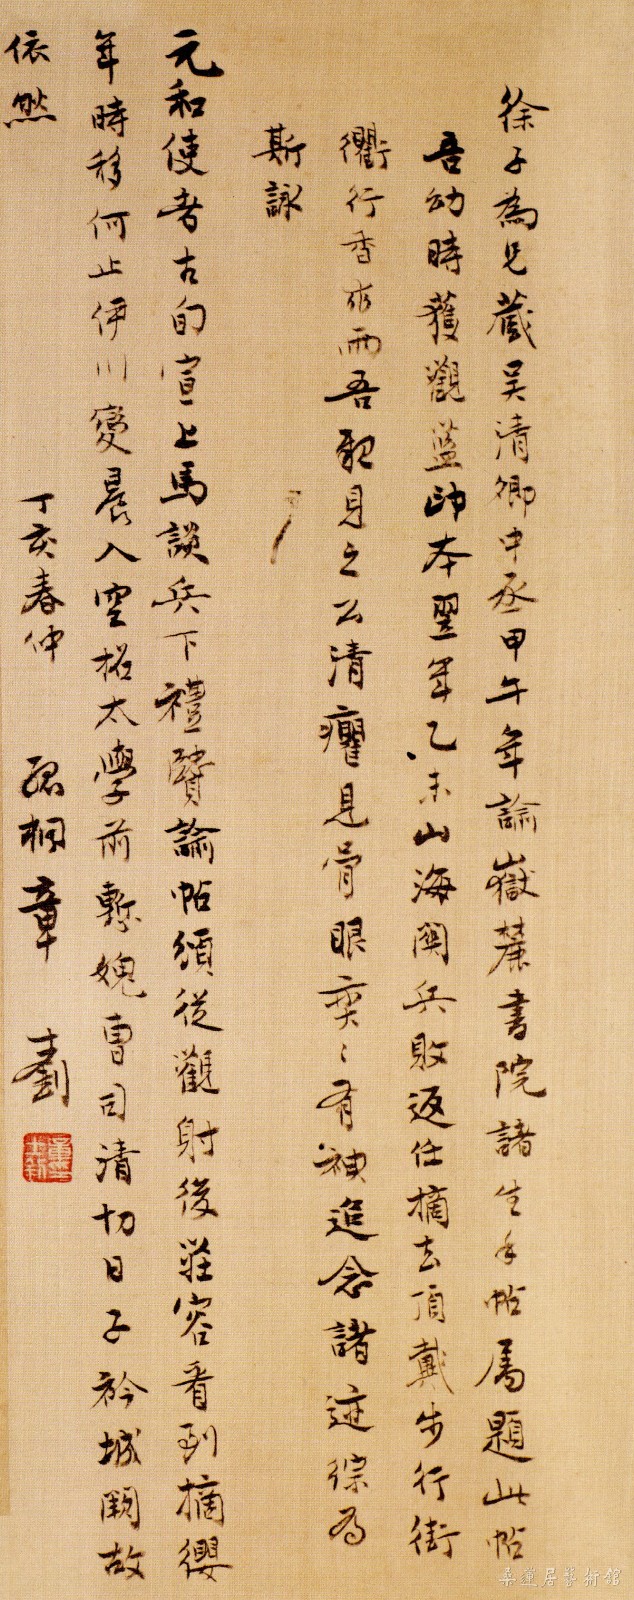 徐子為兄藏吳清卿中丞甲午年論嶽麓書院諸生手帖屬題此帖
吾幼時獲觀藍印本翌年乙未山海關兵敗返任摘去頂戴步行街
衢行香求雨吾親見之公清癯見骨眼奕〻有神追念諸迹綜為
斯詠
元和使者古旬宣上馬談兵下禮賢論帖頌從觀射後莊容看到摘纓
年時移何止伊川變晨入空招太學前慙媿曹司清切日子衿城闕故
依然
丁亥春仲 孤桐章士釗
章士釗
桑蓮居藝術館